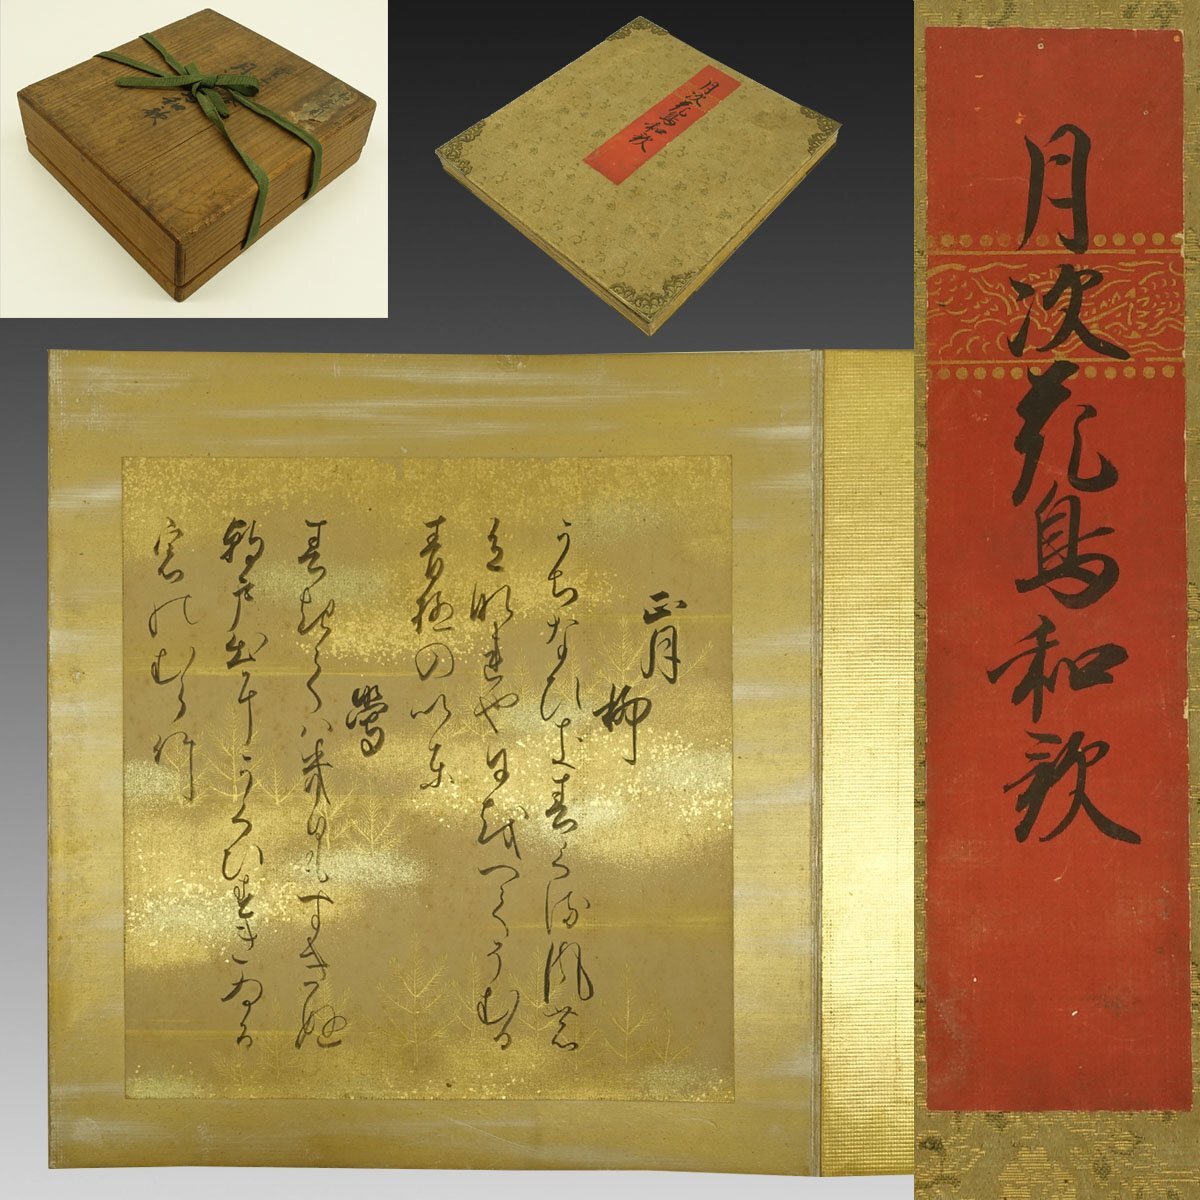 月次花鳥和歌
月次花鳥和歌
正月
柳
うちなひき春くる風の
色なれや日をへてそむる
青柳のいと
鶯
春きてハ幾日もすきぬ
朝戸出にうくひすきゐる
窓のむら竹
和歌